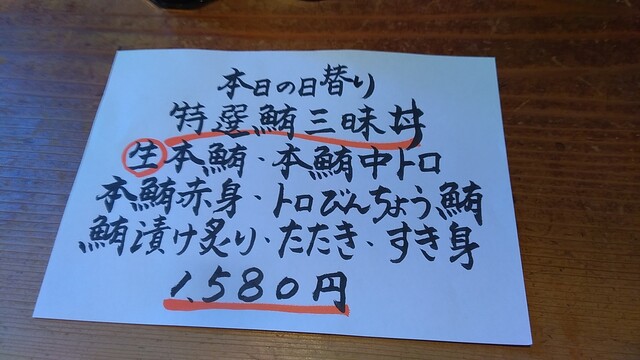 本日の日替り
特選鮪三昧丼
生本鮪・本鮪中トロ
本鮪赤身・トロびんちょう鮪
鮪漬け炙り・たたき・すき身
1,580円